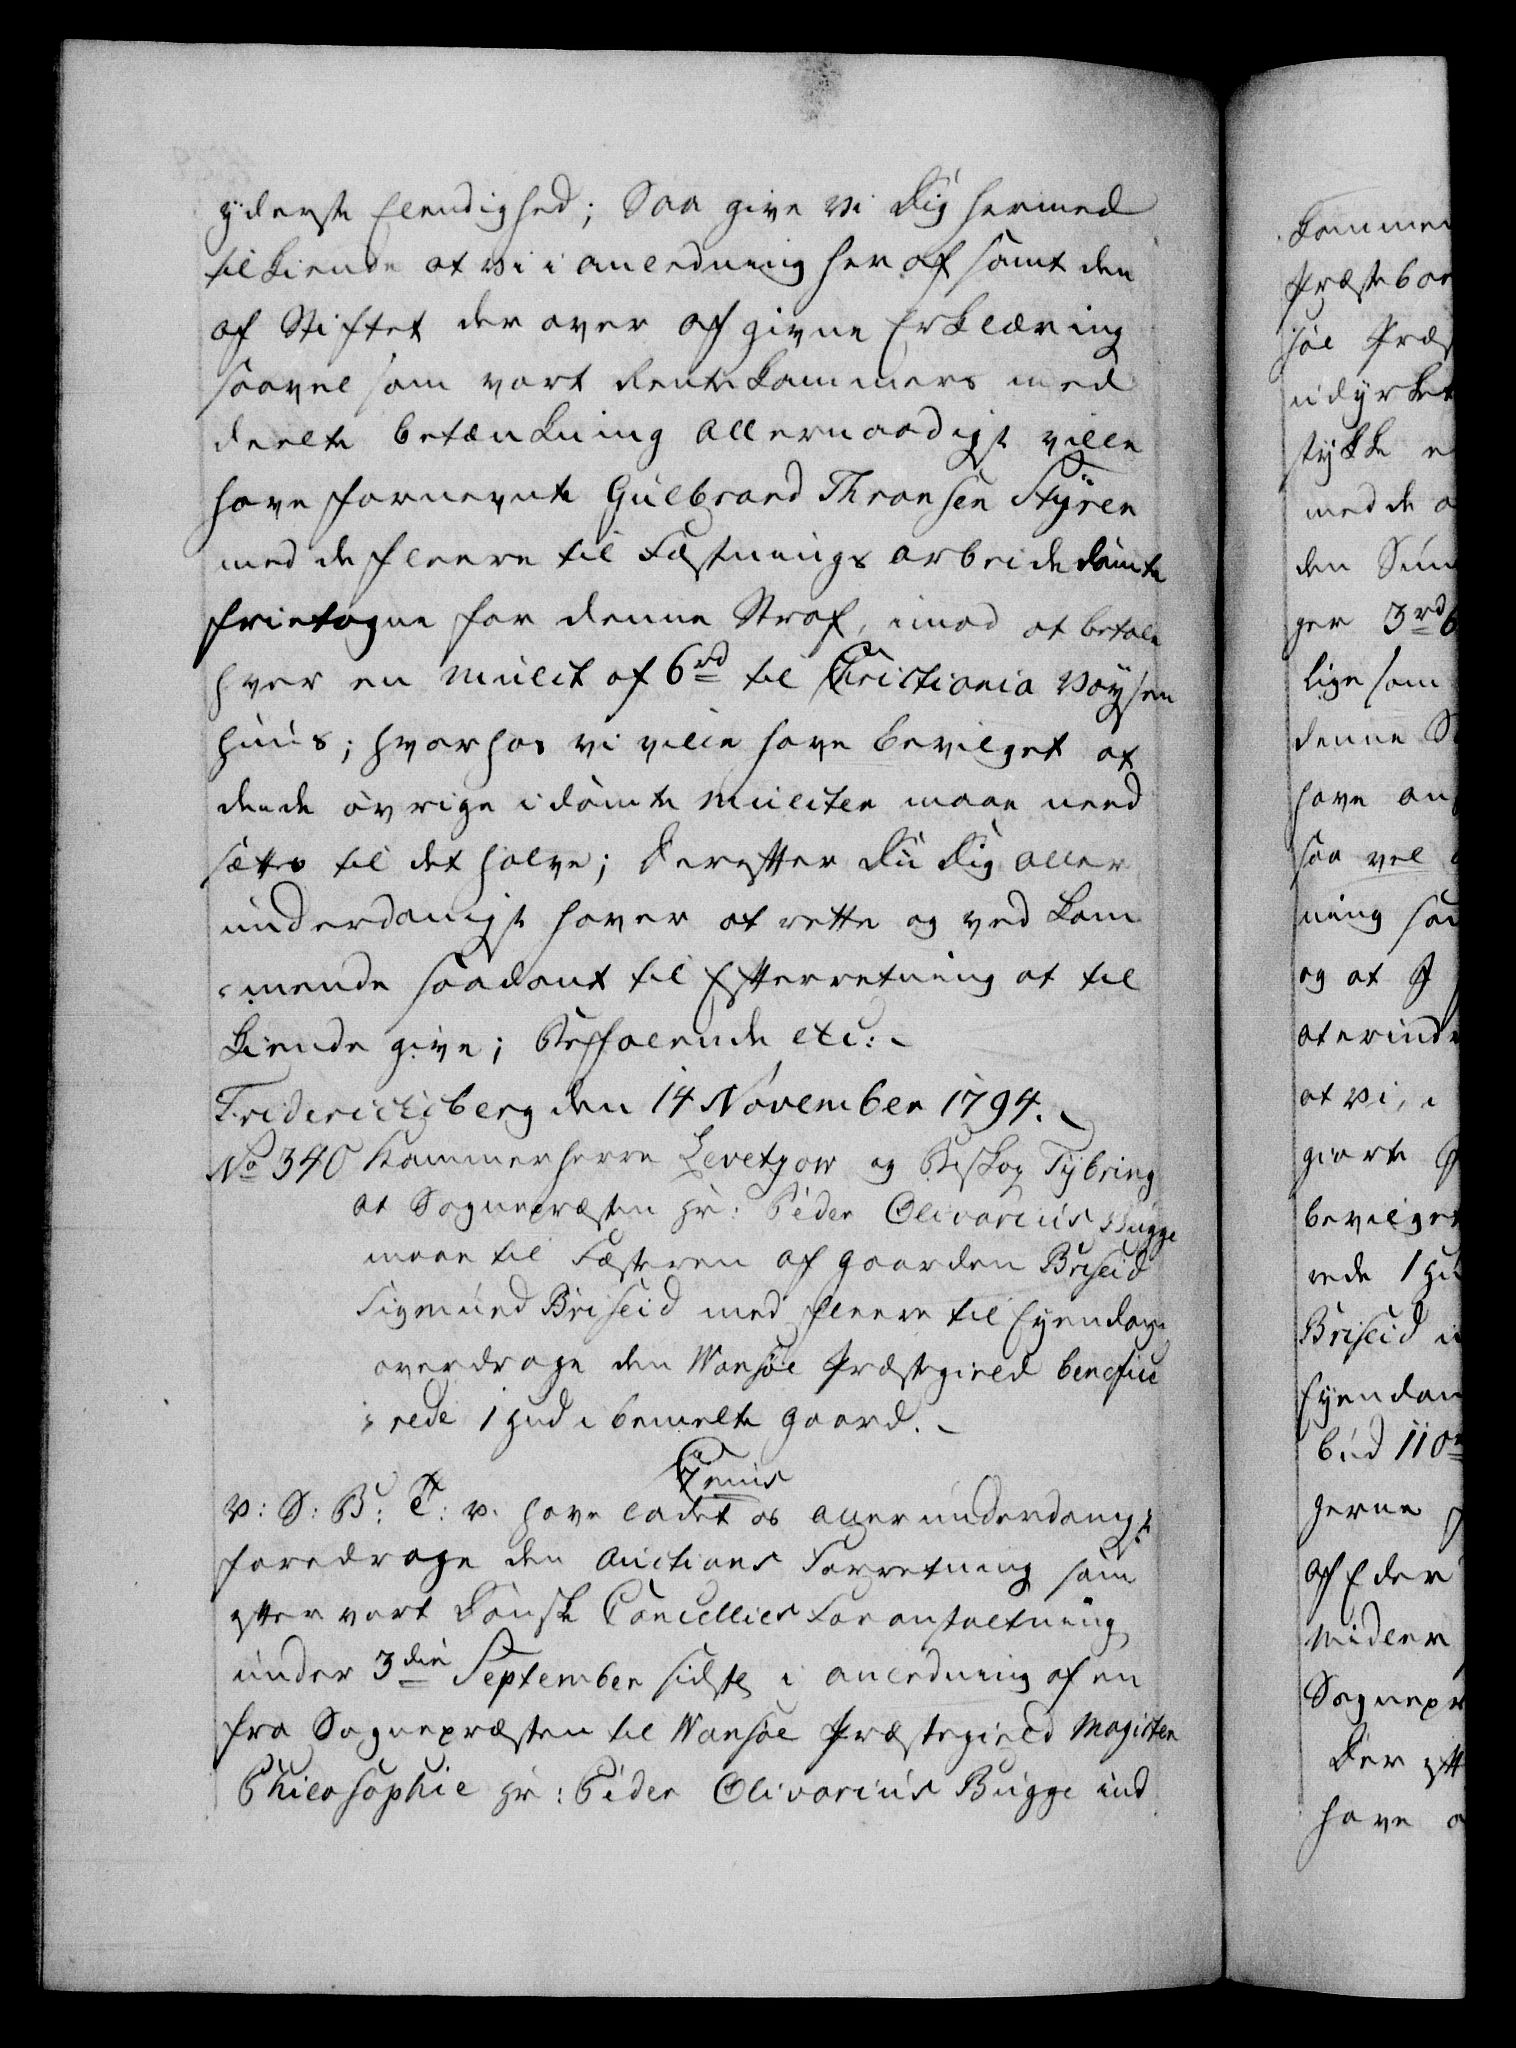 yderste Elendighed; Saa give vi Dig hermed
til kiende at vi i anledning heraf samt den
af Stiftet der over af givne Erklæring
saavel som vort Rente kammers med
deelte betænkning allernaadigst ville
have fornevnte Gulbrand Thronsen Styren
med de fleere til Fæstnings arbeide dømte
frietagne for denne Straf, imod at betale
hver en mulct af 6 rd til Christiania Vaysen
huus; hvorhos vi ville have bevilget at
deende øvrige idømte mulcter maae need
sættes til det halve; Derefter Du Dig aller
underdanigst haver at rette og ved kom
mende saadant til Efterretning at til
kiende give; Befalende etc:
Fridericksberg den 14 November 1794.
No 340 Kammerherre Levetzow og Biskop Tybring
at Sognepræsten Hr: Peder Olivarius Bugge
maae til Fæsteren af gaarden Briseid
Sigmund Briseid med fleere til Eyendom
overdrage den Wansøe Præstegield benefice
rede 1 Hud i bemelte gaard.
C7 enus
V: S: B: T: V. have ladet os allerunderdanigst
foredrage den auctions Forretning som
efter vort Danske Cancellies Foranstaltning
under 3die September sidste i anledning af en
fra Sognepræsten til Wansøe Præstegield Magister
Philosophie Hr: Peder Olivarius Bugge ind
kommen
Præstebo
søe Præs
udyrket
stykke e
med de
den
ger 3 rd 6
lige som
denne S
have an
saa vel
ning
og at
at erind
at vi, i
giorte
bevilget
rede 1 Hu
Briseid
Eyendom
bud 110
gerne
af Eder
midler
Sognepr
Der eft
have